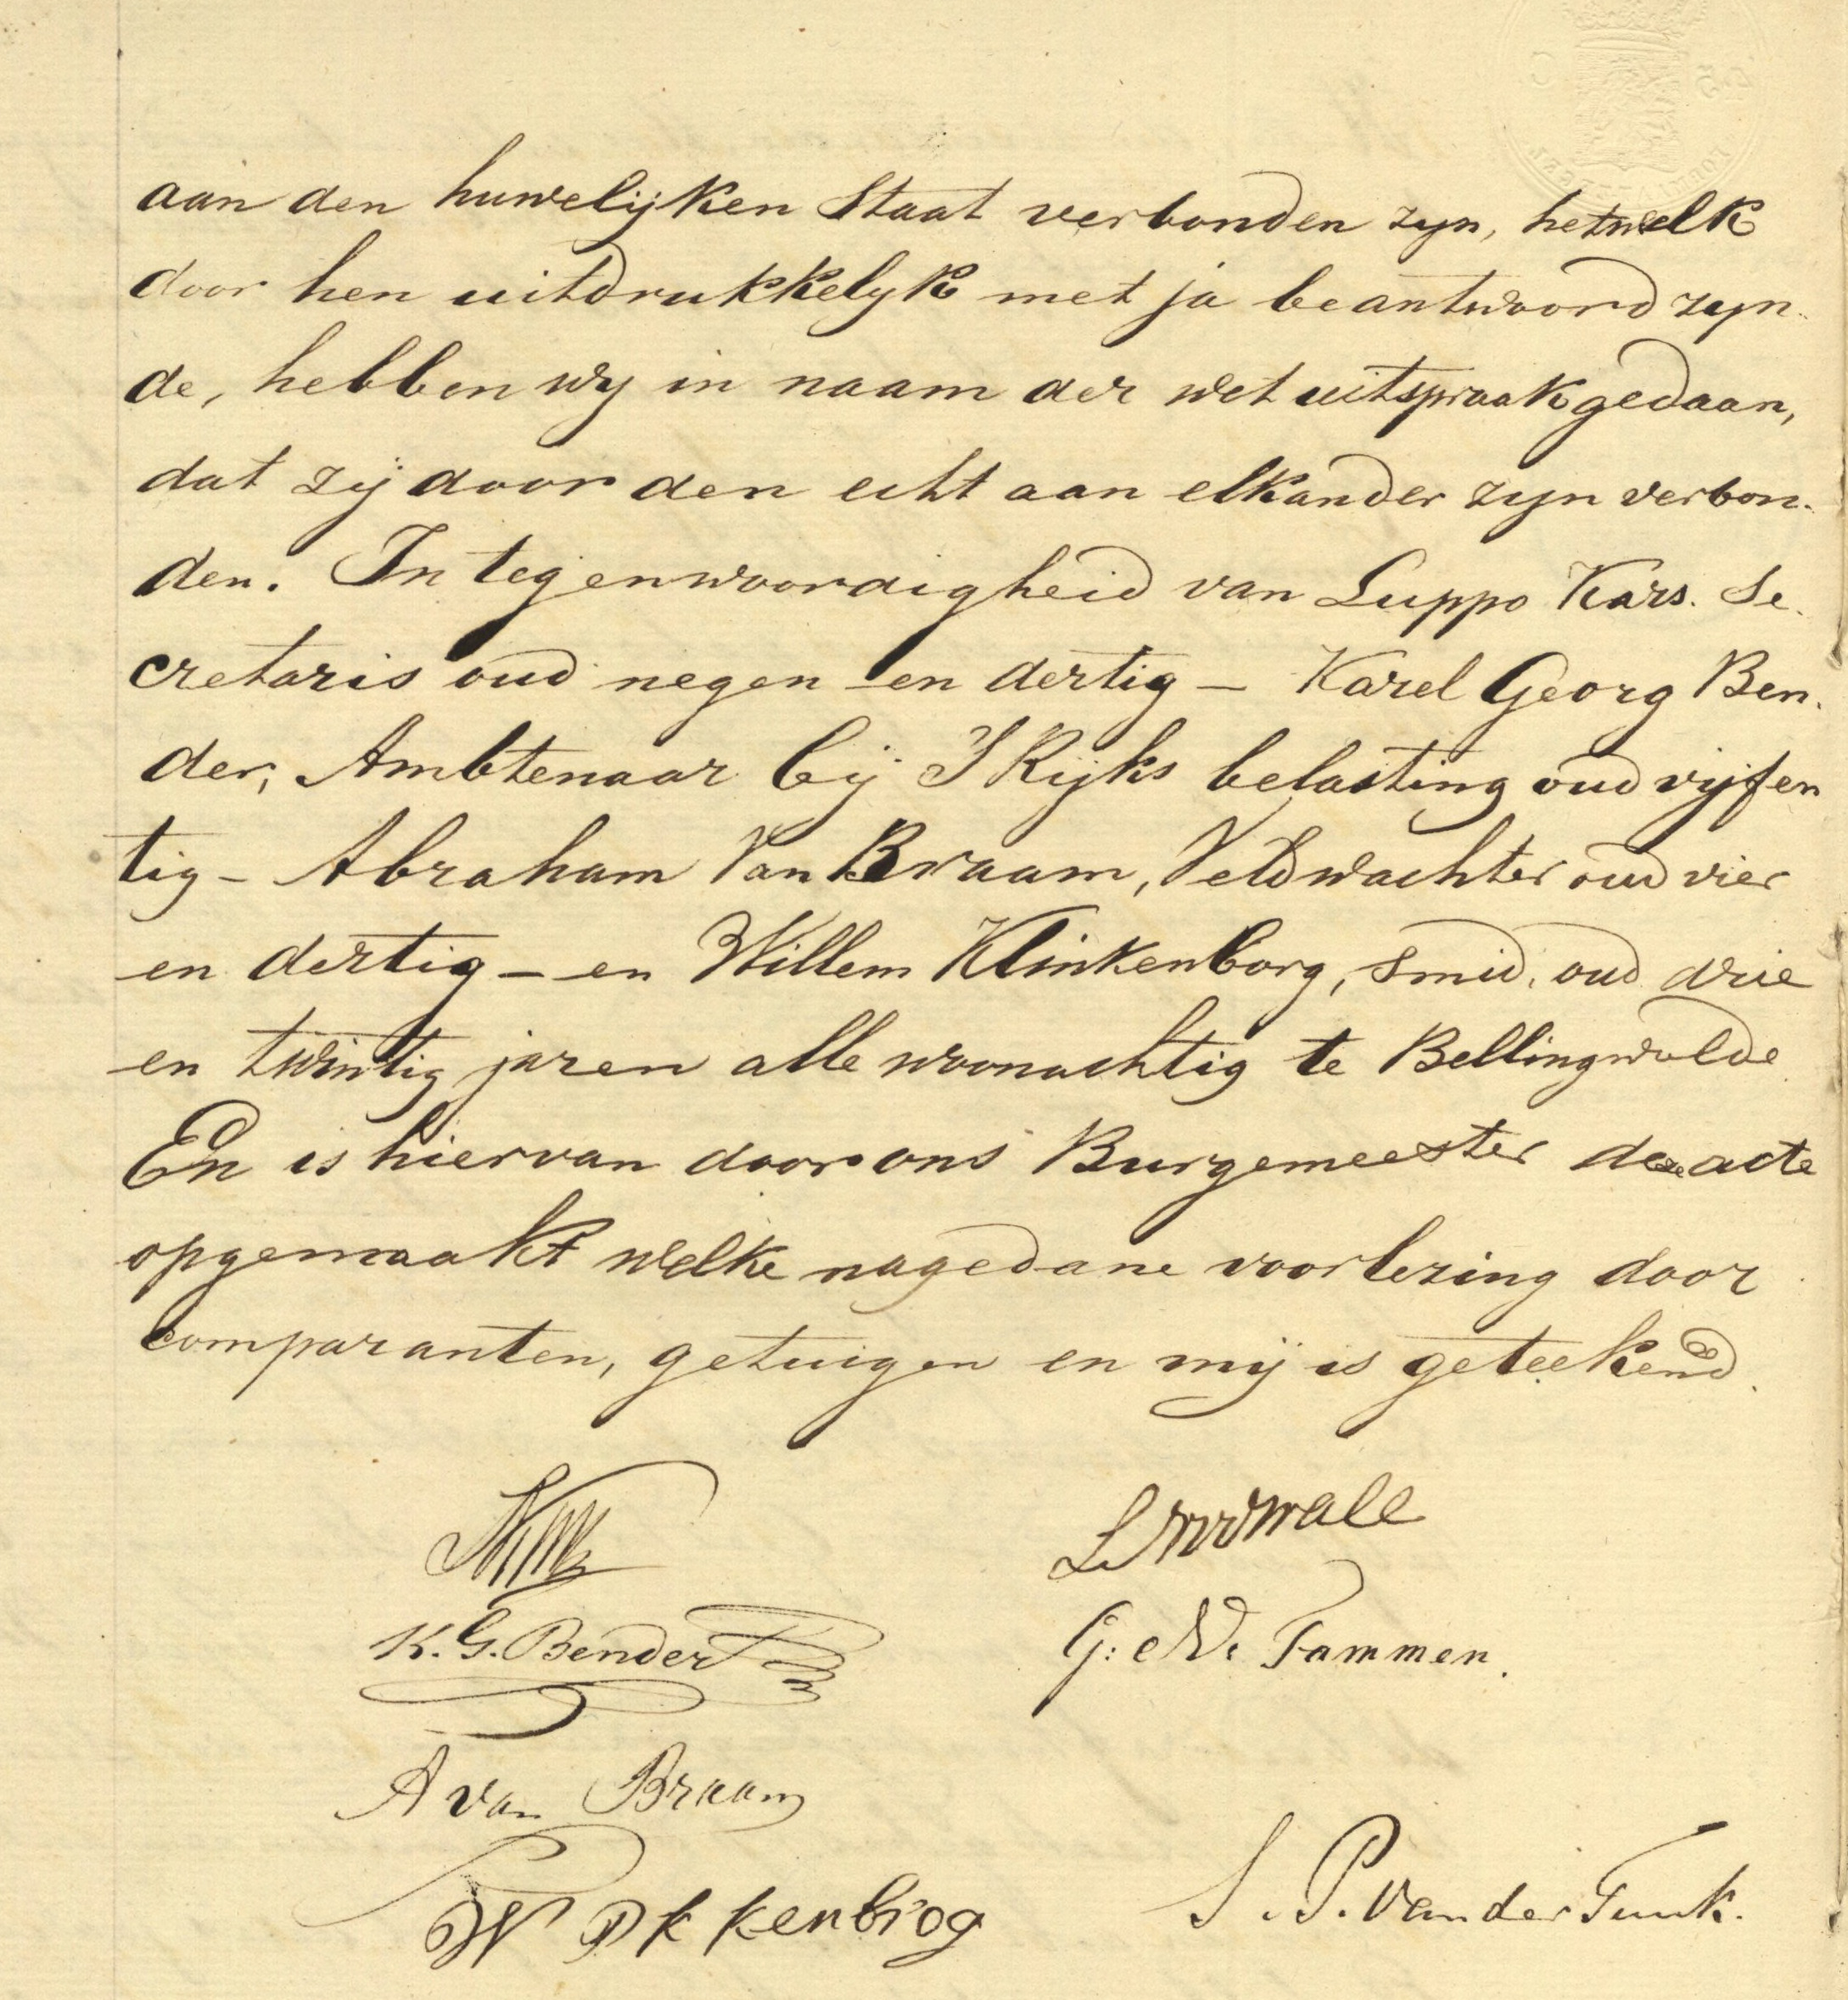 aan den huwelijken Staat verbonden zyn, hetwelk
door hen uitdrukkelyk met ja beantwoord zyn-
de, hebben wy in naam der wet uitspraak gedaan,
dat zij door den echt aan elkander zyn verbon-
den. In tegenwoordigheid van Luppo Kars. Se-
cretaris oud negen en dertig - Karel Georg Ben-
der, Ambtenaar bij S Rijks belasting oud vijfen
tig - Abraham Van Braam, Veldwachter oud vier
en dertig - en Willem Klinkenborg, Smid, oud drie
en twintig jaren alle woonachtig te Bellingwolde
En is hiervan door ons Burgemeester deze acte
opgemaakt welke na gedane voorlezing door
comparanten, getuigen en mij is geteekend.
K. G. Bender
G: W. Tammen.
A van Braam
S. P. van der Tuuk.